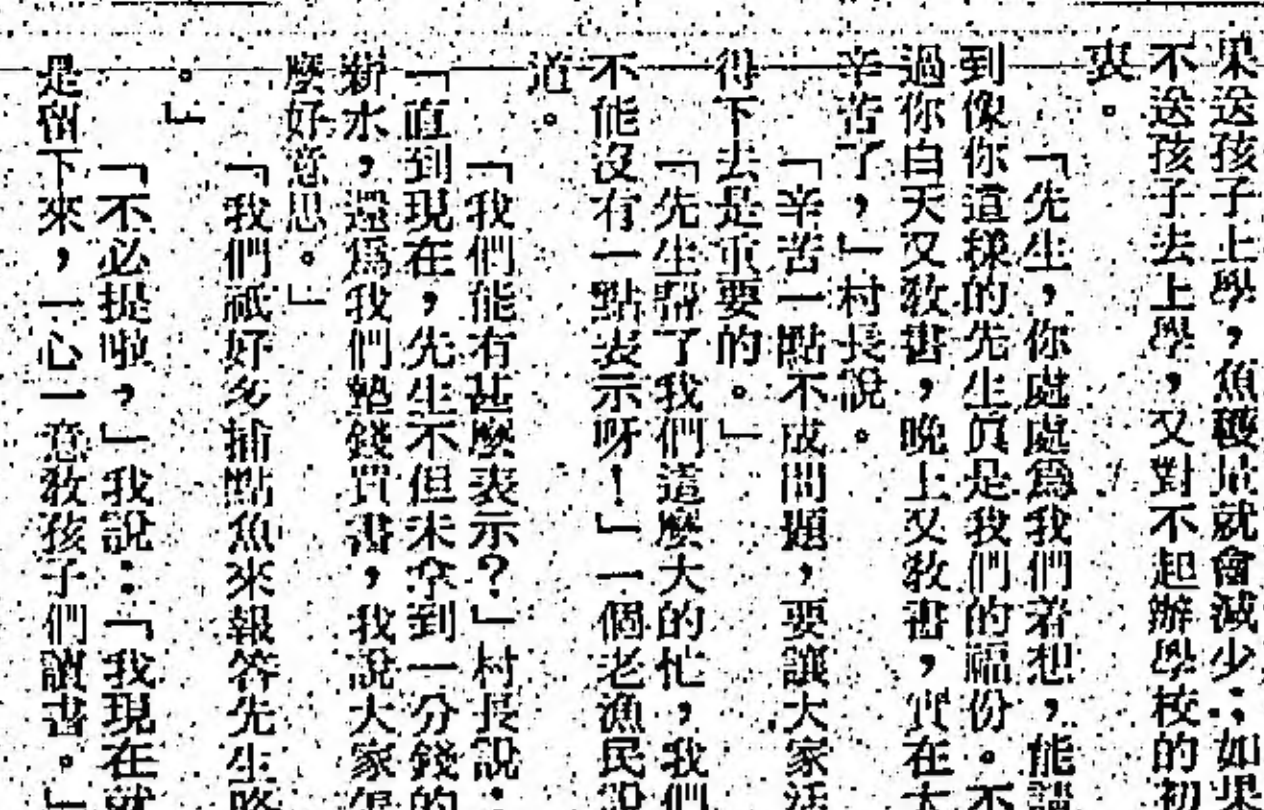 果送孩子上學，魚穫量就會減少；如果
不送孩子去上學，又對不起辦學校的初
衷。
「先生，你處處爲我們着想，能請
到像你這樣的先生眞是我們的福份。不
過你白天又敎書，晚上又敎書，實在太
辛苦了，」村長說。
「辛苦一點不成問題，要讓大家活
得下去是重要的。」
「先生幫了我們這麼大的忙，我們
不能沒有一點表示呀！」一個老漁民說
道。
「我們能有甚麼表示？」村長說：
「直到現在，先生不但未拿到一分錢的
薪水，還爲我們墊錢買書，我說大家怎
麼好意思。」
「我們祗好多捕點魚來報答先生咯
。」
「不必提啦，」我說：「我現在就
是留下來，一心一意敎孩子們讀書。」